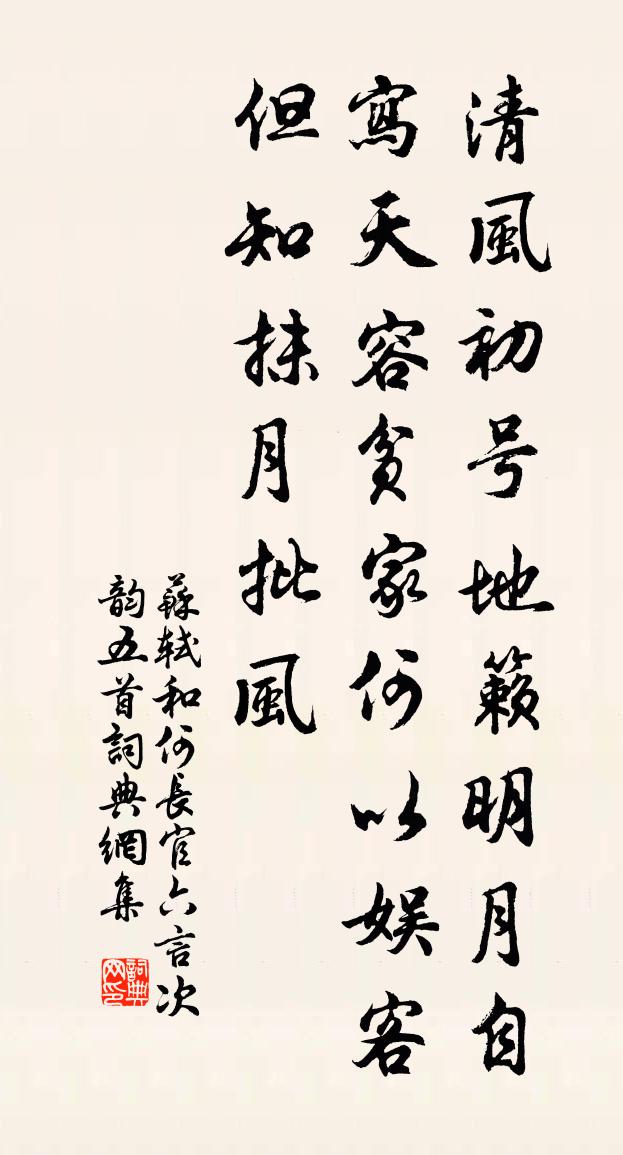 清風初号地籟明月自
寫天容貧家何以娱客
但知抹月批風
蘇軾和何長官六言次
韵五首詞典網集
詞典网印